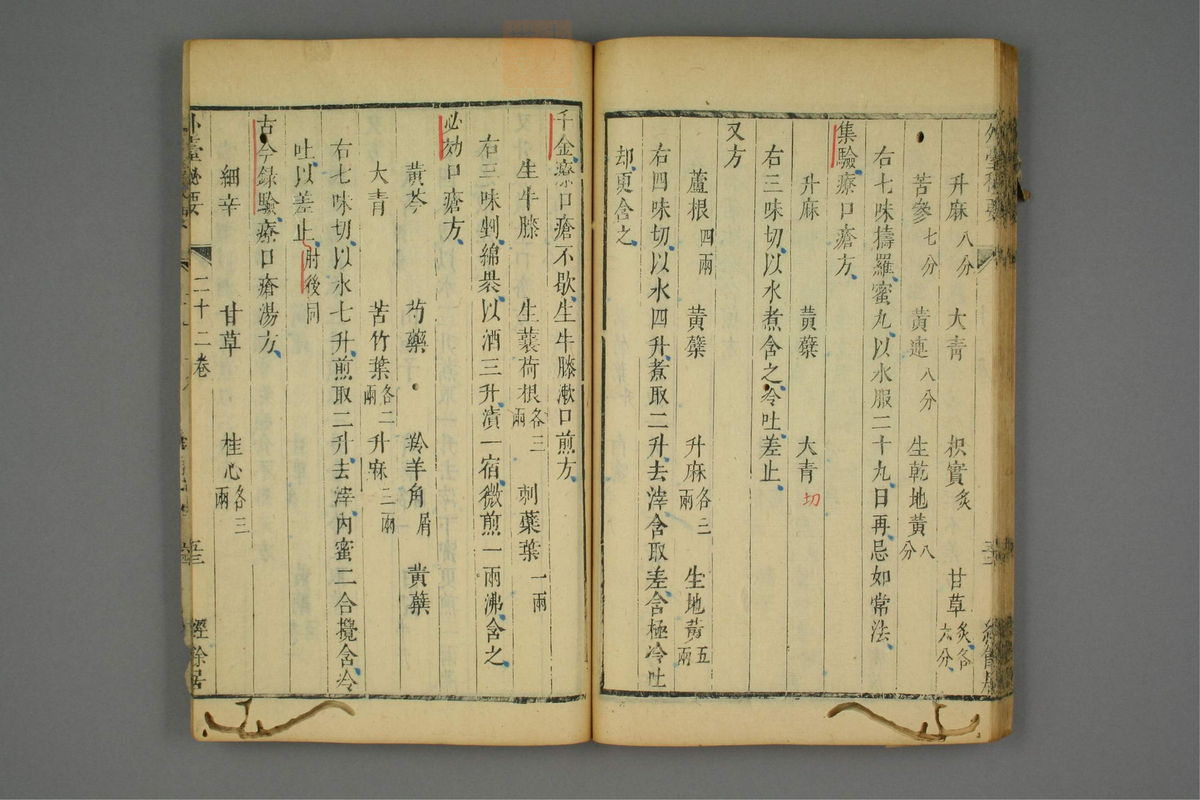 升麻八分 大青 枳實炙 甘草炙各六分
苦參七分 黃連八分 生乾地黃八分
右七味擣羅蜜丸以水服二十九日再忌如常法
集驗療口瘡方
升麻 黃蘗 大青切
右三味切以水煮含之冷吐差止
又方
蘆根四兩 黃蘗 升麻各三兩 生地黃五兩
右四味切以水四升煮取二升去滓含取差含極冷吐
却更含之
千金療口瘡不歇生牛膝漱口煎方
生牛膝 生蘘荷根各三兩 刺蘗葉一兩
右三味剉綿裹以酒三升漬一宿微煎一兩沸含之
必効口瘡方
黃芩 芍藥 羚羊角屑 黃蘗
大青 苦竹葉各二兩 升麻三兩
右七味切以水七升煎取二升去滓內蜜二合攪含冷
吐以差止肘後同
古今録驗療口瘡湯方
細辛 甘草 桂心各三兩
外臺秘要 二十二卷 五三 經餘居